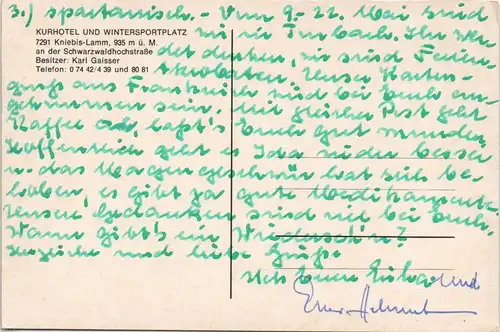 3.) spartanisch. - Vom 9.-22. Mai sind
KURHOTEL UND WINTERSPORTPLATZ
7291 Kniebis-Lamm, 935 m ü. M.
an der Schwarzwaldhochstraße
Besitzer: Karl Gaisser
Telefon: 0 74 42/4 39 und 80 81
wir in Ihr
det denken, wir sind Ferien-
Akrobaten. Unser Karten-
gruß aus Frankreich wird bei Euch an-
gekommen sein. Mit gleicher Post geht
Kaffee ab, laßt's Euch gut munden.
Hoffentlich geht es Ida wieder besser
u. das Magengeschwür läßt sich be-
heben, es gibt ja gute Medikamente.
Unsere Gedanken sind viel bei Euch.
Wann gibt's ein Wiederseh'n?
Herzliche und liebe Grüße
Eure und
Euer Helmut